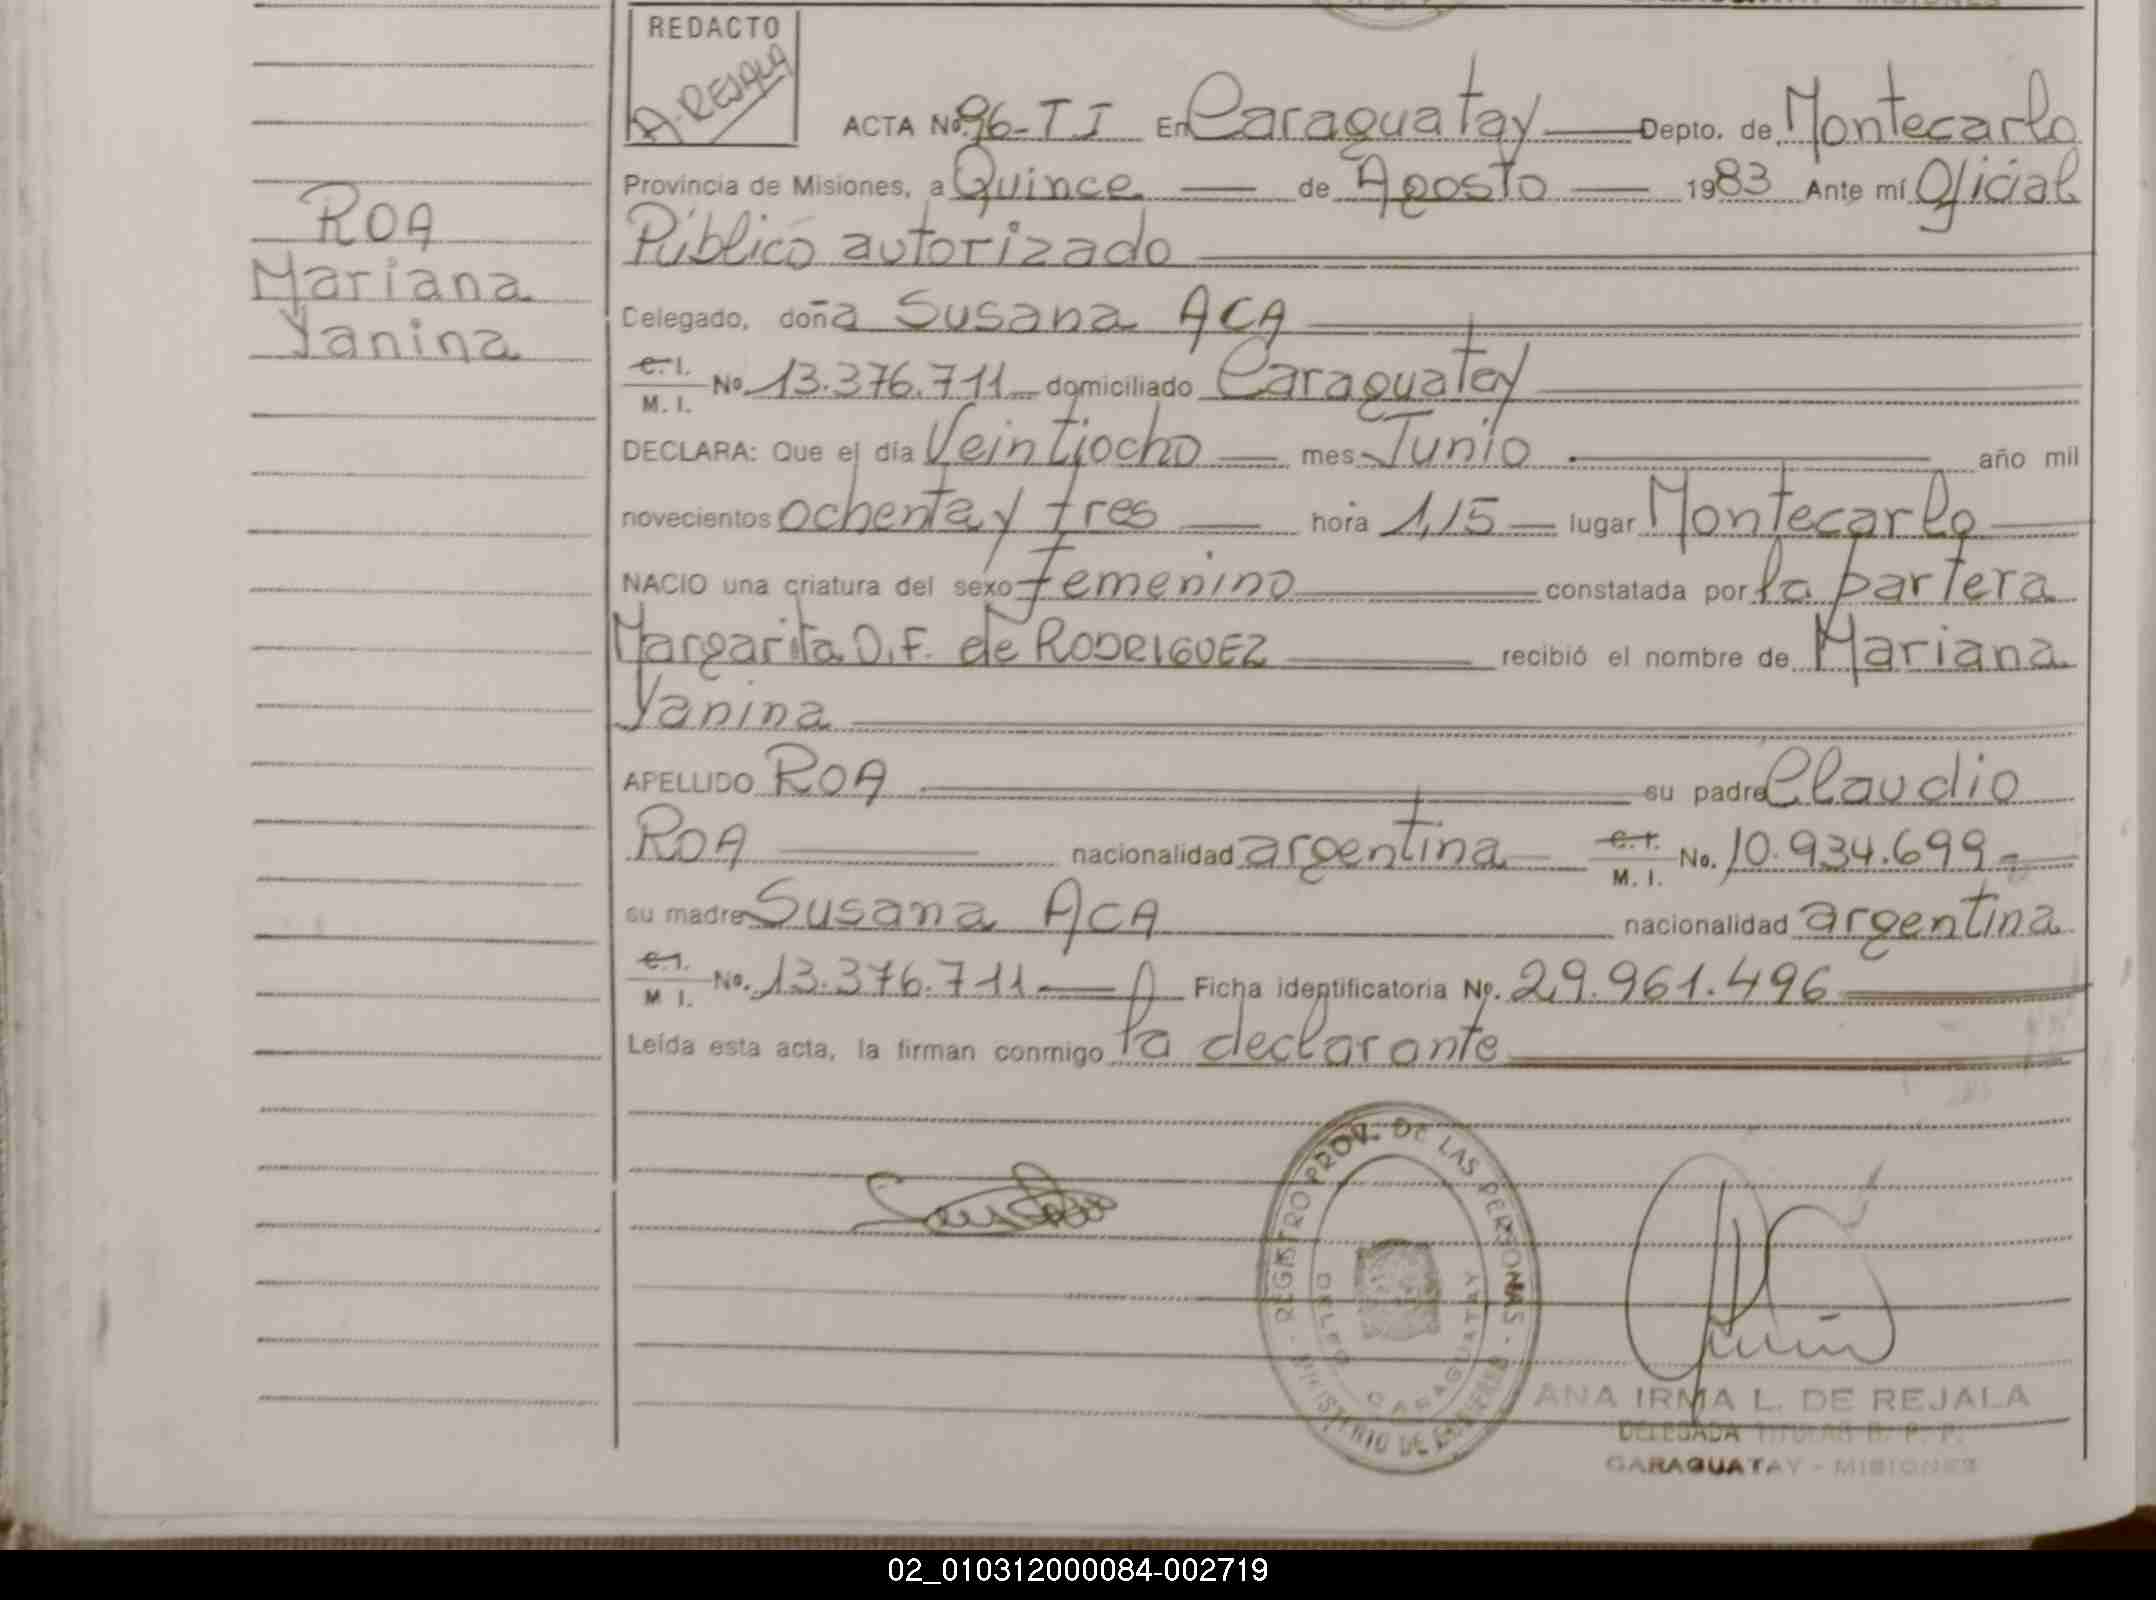 REDACTO
A. REJALA
ACTA No. 96-TI En Caraguatay Depto. de Montecarlo
Provincia de Misiones, a Quince de Agosto 1983 Ante mí Oficial
Público autorizado
Delegado, doña Susana ACA
C. I.
M. I. No 13.376.711 domiciliado Caraguatay
DECLARA: Que el día Veintiocho mes Junio año mil
novecientos ochenta y tres hora 1,15 lugar Montecarlo
NACIO una criatura del sexo femenino constatada por la partera
Margarita O. F. de RODRIGUEZ recibió el nombre de Mariana
Yanina
APELLIDO ROA su padre Claudio
ROA nacionalidad argentina C. I.
M. I. No. 10.934.699
su madre Susana ACA nacionalidad argentina
C. I.
M I. No. 13.376.711 Ficha identificatoria No. 29.961.496
Leída esta acta, la firman conmigo la declarante
ROA
Mariana
Yanina
REGISTRO PROV. DE LAS PERSONAS - MINISTERIO DE GOBIERNO -
CARAGUATAY
ANA IRMA L. DE REJALA
DELEGADA TITULAR R. P. P.
CARAGUATAY - MISIONES
02_010312000084-002719